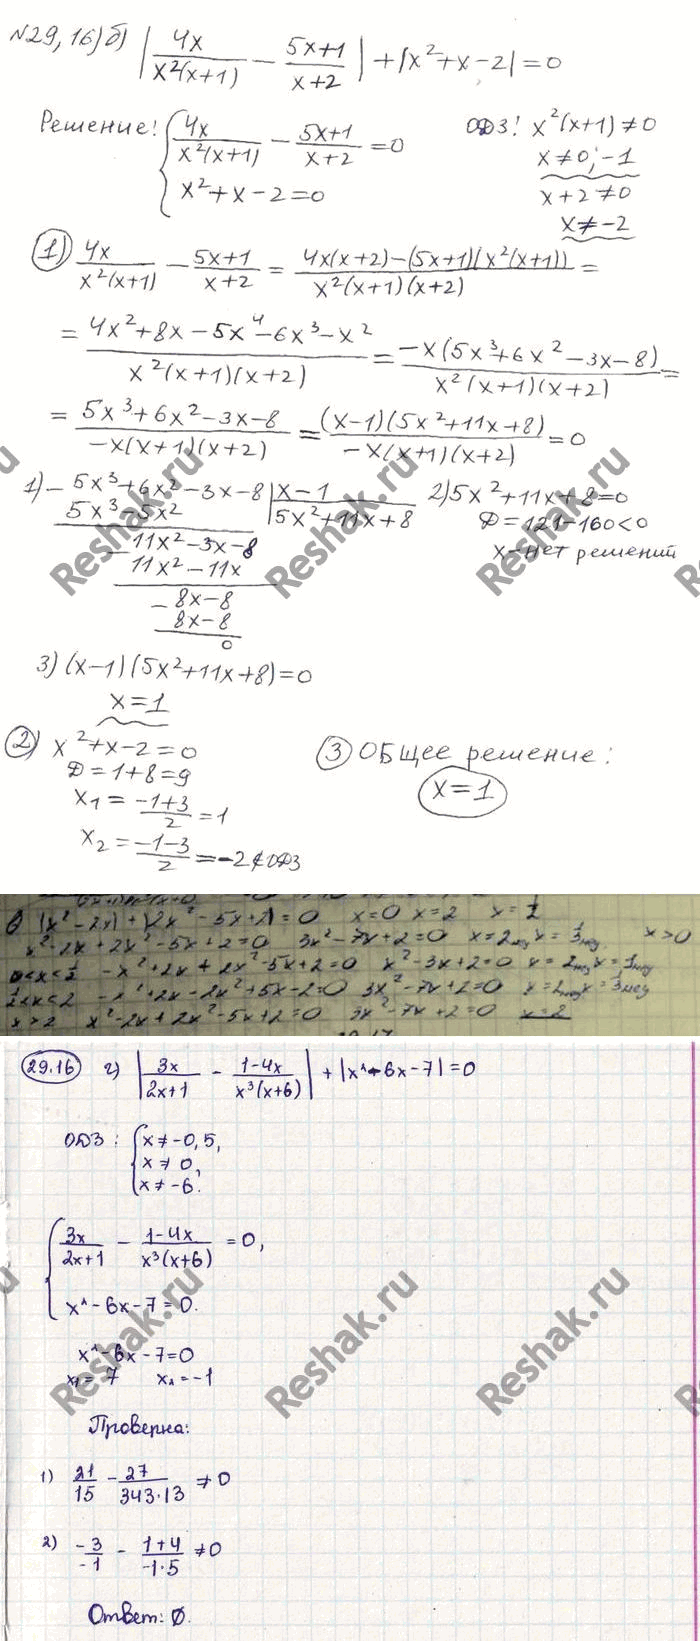 №29,16)б) |4x/(x²(x+1)) − (5x+1)/(x+2)| + |x²+x−2| = 0
Решение: { 4x/(x²(x+1)) − (5x+1)/(x+2) = 0
x²+x−2=0
ОДЗ: x²(x+1)≠0
x≠0;−1
x+2≠0
x≠−2
1) 4x/(x²(x+1)) − (5x+1)/(x+2) = (4x(x+2)−(5x+1)(x²(x+1)))/(x²(x+1)(x+2)) =
= (4x²+8x−5x⁴−6x³−x²)/(x²(x+1)(x+2)) = (−x(5x³+6x²−3x−8))/(x²(x+1)(x+2)) =
= (5x³+6x²−3x−8)/(−x(x+1)(x+2)) = ((x−1)(5x²+11x+8))/(−x(x+1)(x+2)) = 0
1) − 5x³+6x²−3x−8 | x−1
5x³−5x² | 5x²+11x+8
− 11x²−3x−8
11x²−11x
− 8x−8
8x−8
0
2) 5x²+11x+8=0
Д=121−160<0
x−нет решений
3) (x−1)(5x²+11x+8)=0
x=1
2) x²+x−2=0
Д=1+8=9
x₁ = (−1+3)/2 = 1
x₂ = (−1−3)/2 = −2∉ОДЗ
3 Общее решение:
x=1
в |x²−2x|+|2x²−5x+2|=0 x=0 x=2 x=½
x²−2x+2x²−5x+2=0 3x²−7x+2=0 x=2 x=⅓ x>0
−x²+2x+2x²−5x+2=0 x²−3x+2=0 x=2 x=1
½<x<2 −x²+2x−2x²+5x−2=0 3x²−7x+2=0 x=2 x=⅓
x>2 x²−2x+2x²−5x+2=0 3x²−7x+2=0 x=2
29.16 г) |3x/(2x+1) − (1−4x)/(x³(x+6))| + |x²−6x−7|=0
ОДЗ: { x≠−0,5,
x≠0,
x≠−6.
{ 3x/(2x+1) − (1−4x)/(x³(x+6)) = 0,
x²−6x−7=0.
x²−6x−7=0
x₁=7 x₂=−1
Проверка:
1) 21/15 − −27/(343·13) ≠0
2) −3/−1 − (1+4)/(−1·5) ≠0
Ответ: Ø.
Reshak.ru
Reshak.ru
Reshak.ru
Reshak.ru
Reshak.ru
Reshak.ru